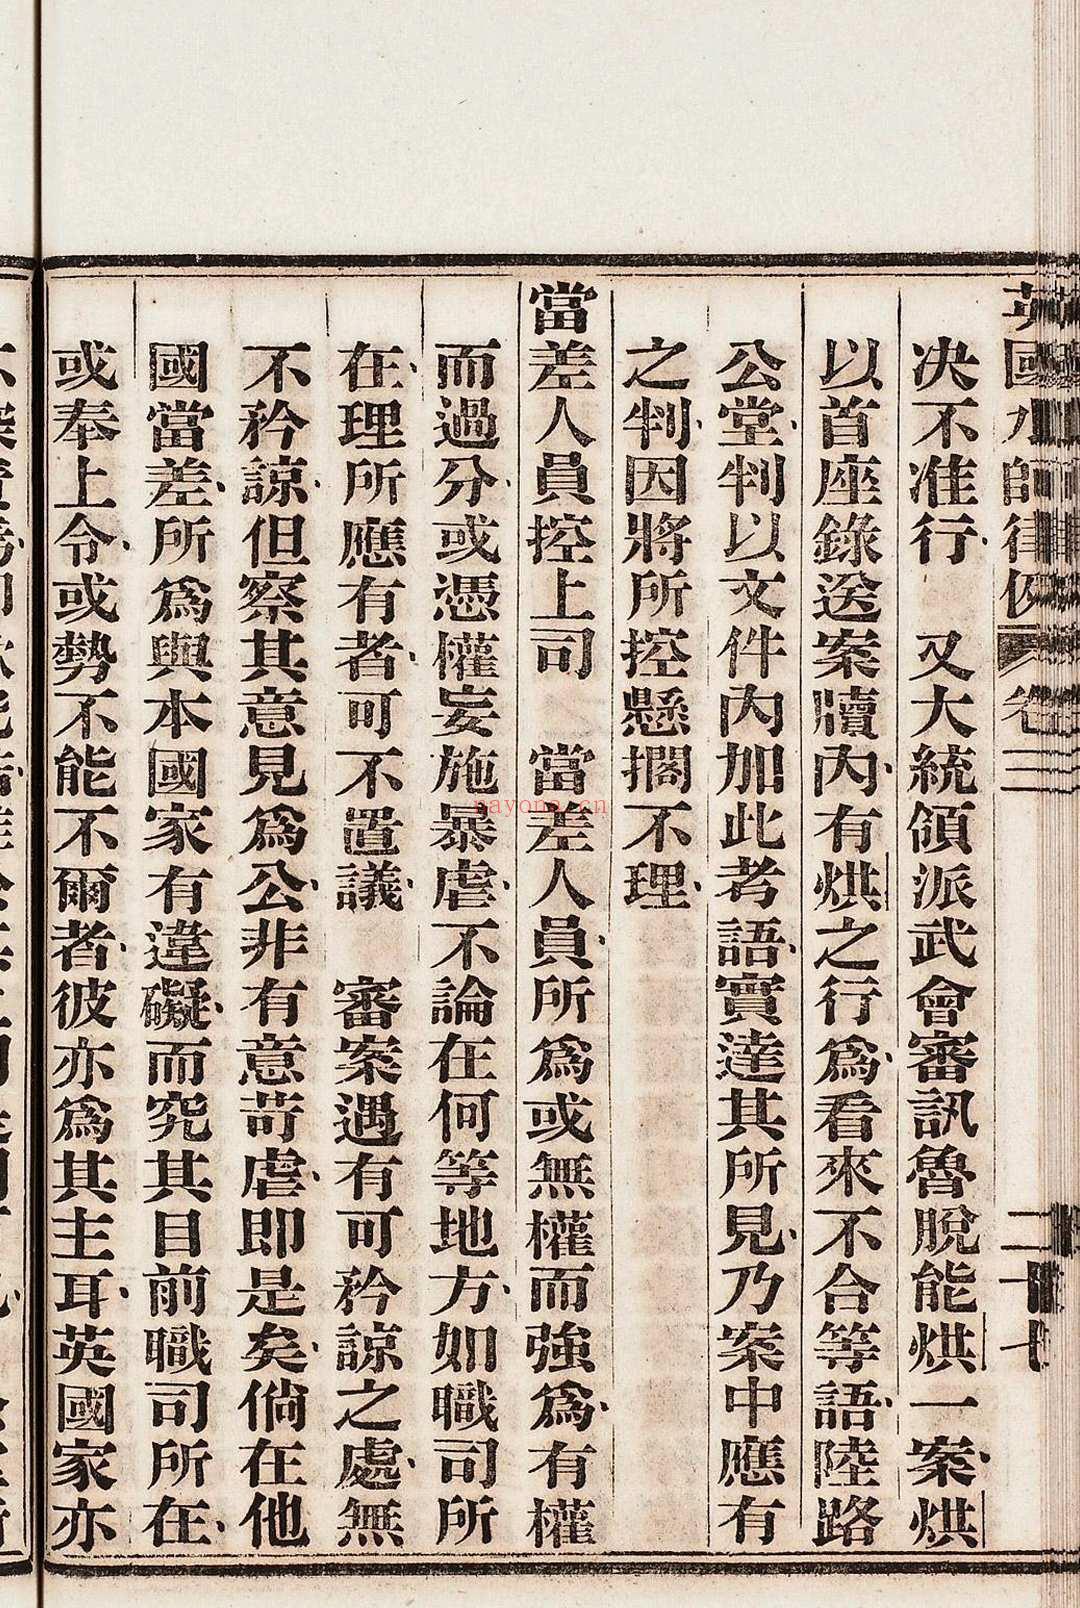 英國水師律例 卷三 二十七
决不准行 又大統領派武會審訊魯脫能烘一案烘
以首座錄送案牘內有烘之行爲看來不合等語陸路
公堂判以文件內加此考語實達其所見乃案中應有
之判因將所控懸擱不理
當差人員控上司 當差人員所爲或無權而強爲有權
而過分或憑權妄施暴虐不論在何等地方如職司所
在理所應有者可不置議 審案遇有可矜諒之處無
不矜諒但察其意見爲公非有意苛虐即是矣倘在他
國當差所爲與本國家有違礙而究其目前職司所在
或奉上令或勢不能不爾者彼亦爲其主耳英國家亦
nayona.cn